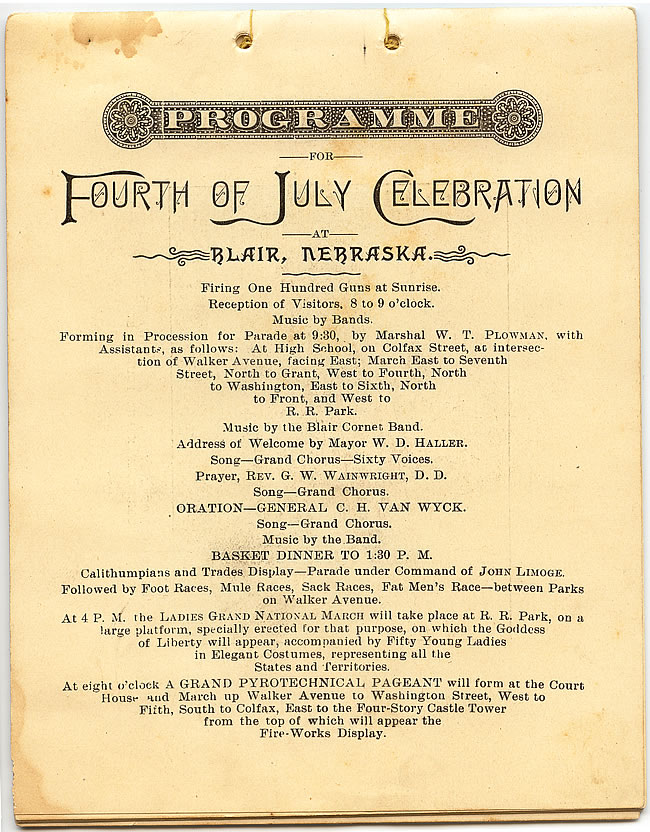 PROGRAMME
FOR
FOURTH OF JULY CELEBRATION
AT
BLAIR, NEBRASKA.
Firing One Hundred Guns at Sunrise.
Reception of Visitors, 8 to 9 o'clock.
Music by Bands.
Forming in Procession for Parade at 9:30, by Marshal W. T. PLOWMAN, with
Assistants, as follows: At High School, on Colfax Street, at intersec-
tion of Walker Avenue, facing East; March East to Seventh
Street, North to Grant, West to Fourth, North
to Washington, East to Sixth, North
to Front, and West to
R. R. Park.
Music by the Blair Cornet Band.
Address of Welcome by Mayor W. D. HALLER.
Song—Grand Chorus—Sixty Voices.
Prayer, REV. G. W. WAINWRIGHT, D. D.
Song—Grand Chorus.
ORATION—GENERAL C. H. VAN WYCK.
Song—Grand Chorus.
Music by the Band.
BASKET DINNER TO 1:30 P. M.
Calithumpians and Trades Display—Parade under Command of JOHN LIMOGE.
Followed by Foot Races, Mule Races, Sack Races, Fat Men's Race—between Parks
on Walker Avenue.
At 4 P. M. the LADIES GRAND NATIONAL MARCH will take place at R. R. Park, on a
large platform, specially erected for that purpose, on which the Goddess
of Liberty will appear, accompanied by Fifty Young Ladies
in Elegant Costumes, representing all the
States and Territories.
At eight o'clock A GRAND PYROTECHNICAL PAGEANT will form at the Court
House and March up Walker Avenue to Washington Street, West to
Fifth, South to Colfax, East to the Four-Story Castle Tower
from the top of which will appear the
Fire-Works Display.